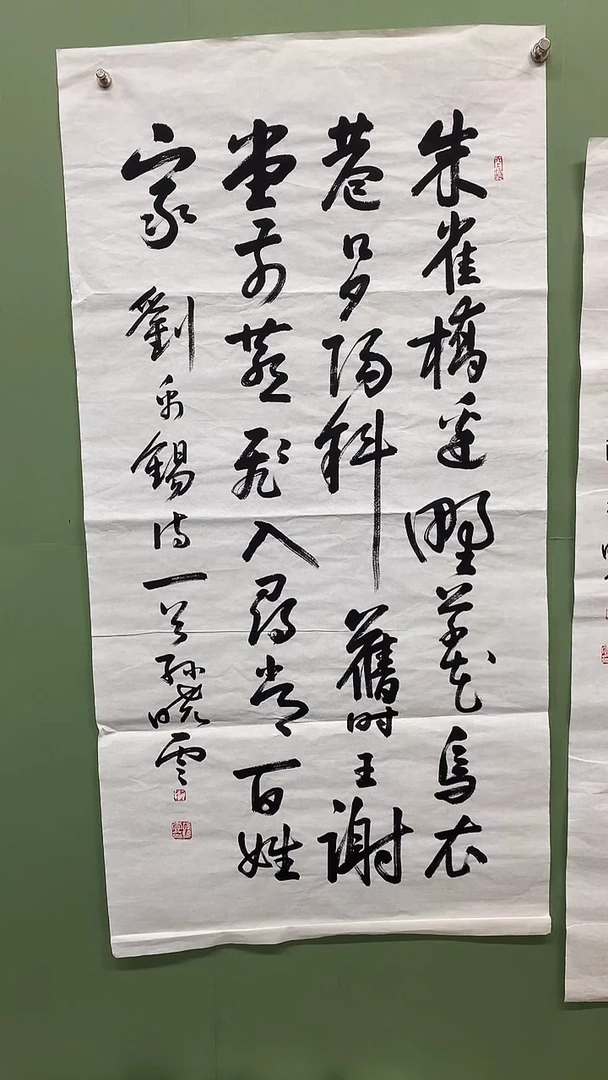 朱雀橋邊野草花烏衣
巷口夕陽斜舊时王謝
堂前燕飛入尋常百姓
家 劉禹錫詩一首 孫曉雲